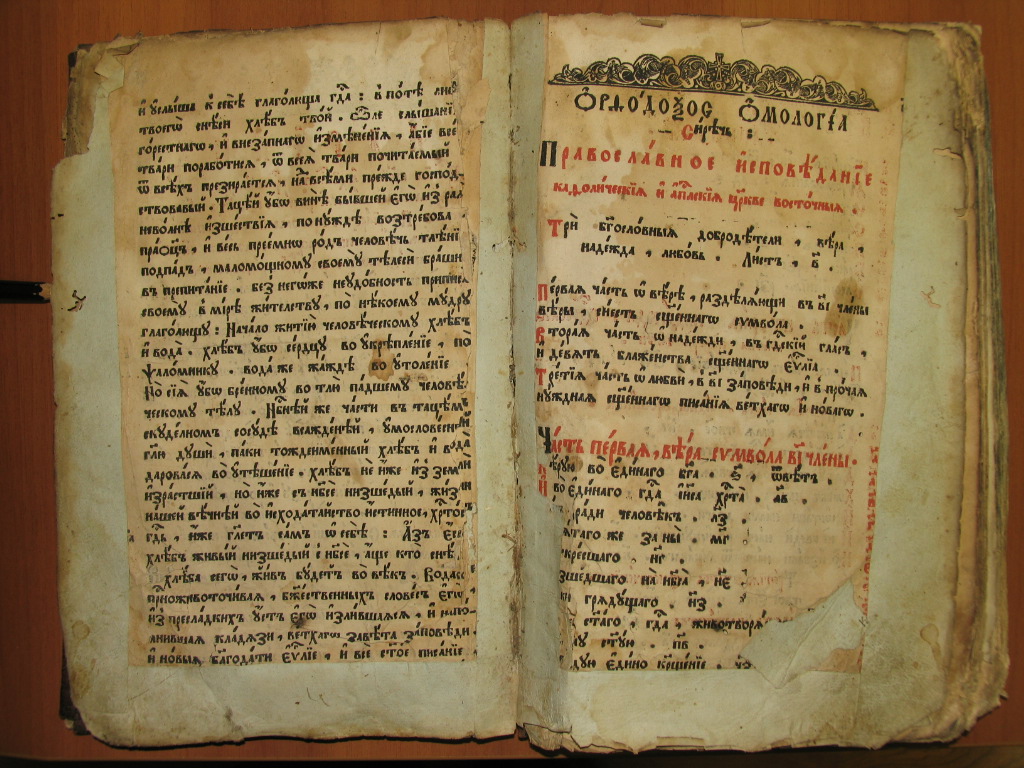 и҆ ᲂу҆слы́ша к̾ себѣ̀ глаго́люща гдⷭ҇а : в̾ по́тѣ лица̀
твоегѡ̀ снѣ́си хлѣ́бъ тво́й . Ѽле слы́шанїѧ
го́рестнагѡ , и҆ внеза́пнагѡ и҆змѣне́нїѧ , а҆́бїе все́ѧ
тва́ри порабо́тисѧ , ѿ всеѧ̀ тва́ри почита́емый
ѿ всѣ́хъ презира́етсѧ , на́дъ всѣ́ми пре́жде госпо́д-
ствовавый . Таце́й ᲂу҆́бѡ винѣ̀ бы́вшей є҆гѡ̀ и҆з̾ раѧ̀
нево́лнѣ и҆зше́ствїѧ , по нꙋ́ждѣ возтре́бова
пра́ѻц҃ъ , и҆ ве́сь прее́мнѡ ро́дъ человѣ́чь тлѣ́нїю
подпа́дъ , маломо́щномꙋ своемꙋ̀ тѣлесѝ бра́шна
въ препита́нїе . Без̾ негѡ́же неꙋдо́бность приписа
своемꙋ̀ в̾ мі́рѣ жи́телствꙋ , по нѣ́коемꙋ мꙋ́дрꙋ
глаго́лющꙋ : Нача́ло житїю̀ человѣ́ческомꙋ хлѣ́бъ
и҆ вода̀ . хлѣ́бъ ᲂу҆́бѡ се́рдцꙋ во ᲂу҆крѣпле́нїе , по
Ѱало́мникꙋ . вода́ же жа́ждѣ во ᲂу҆толе́нїе
Но сїѧ̀ ᲂу҆́бѡ бре́нномꙋ во тлю̀ па́дшемꙋ человѣ́-
ческомꙋ тѣ́лꙋ . Нб҇нѣй же ча́сти въ таце́мъ
скꙋде́лномъ сосꙋ́дѣ всажде́нѣй , ᲂу҆мослове́снѣй
гл҃ю дꙋшѝ , па́ки тождеиме́нный хлѣ́бъ и҆ вода̀
дарова́сѧ во ᲂу҆тѣше́нїе . хлѣ́бъ не и҆́же и҆з̾ землѝ
и҆зра́стшїй , но и҆́же съ нб҃сѐ низше́дый , жи́зни
на́шей вѣ́чнѣй во и҆схода́тайство и҆́стинное , хрⷭ҇то́съ
гдⷭ҇ь , и҆́же гл҃етъ са́мъ ѡ҆ себѣ̀ : А҆́зъ Е҆́смь
хлѣ́бъ живы́й низше́дый с̾ нб҃сѐ , а҆́ще кто̀ снѣ́сть
хлѣ́ба сегѡ̀ , жи́въ бꙋ́детъ во вѣ́къ . Вода́ же
приѡживоточи́ваѧ , бжⷭ҇е́ственныхъ слове́съ є҆гѡ̀ ,
и҆з̾ пресла́дкихъ ᲂу҆́стъ є҆гѡ̀ и҆злїѧ́вшаѧсѧ , и҆
кла́дѧзи , ве́тхагѡ завѣ́та за́повѣди
и҆ но́выѧ блгⷣа́ти є҆ѵⷢ҇лїе , и҆ всѐ ст҃о́е писа́нїе ,
Ѻ҆РѲО́ДОѮОС Ѻ҆МОЛОГІ́А
Си́рѣчь :
Правосла́вное и҆сповѣ́данїе
каѳоли́ческїѧ и҆ а҆пⷭ҇лскїѧ цр҃кве восто́чныѧ .
Трѝ бг҃осло́вныѧ добродѣ́тели , вѣ́ра ,
наде́жда , любо́вь . Ли́стъ , в҃ .
Пе́рваѧ ча́сть ѡ҆ вѣ́рѣ , раздѣлѧ́ющи въ в҃і чле́ны
вѣ́ры , си́есть сщ҃е́ннагѡ сѵмво́ла .
Втора́ѧ ча́сть ѡ҆ наде́жди , въ гдⷭ҇скїй гла́съ ,
и҆ де́вѧть блаже́нства сщ҃е́ннагѡ є҆ѵⷢ҇лїа .
Тре́тїѧ ча́сть ѡ҆ любвѝ , в̾ в҃і за́повѣди , и҆ в̾ про́чаѧ
нꙋ́жднаѧ сщ҃е́ннагѡ писа́нїѧ ве́тхагѡ и҆ но́вагѡ .
Ча́сть пе́рваѧ , вѣ́ра сѵмво́ла в҃і чле́ны .
Вѣ́рꙋю во є҆ди́наго бг҃а . ѕ҃ , ѿвѣ́тъ .
И҆ во є҆ди́наго гдⷭ҇а і҆и҃са хрⷭ҇та̀ . л҃в .
ра́ди человѣ́къ . л҃з .
ѧ́таго же за ны̀ . м҃г
кре́сшаго . н҃г .
зше́дшаго на нб҃са̀ , н҃е
грѧдꙋ́щаго . н҃з .
ст҃а́го , гдⷭ҇а , животворѧ́
ст҃ꙋ́ю . п҃в .
є҆ди́но кр҃ще́нїе .